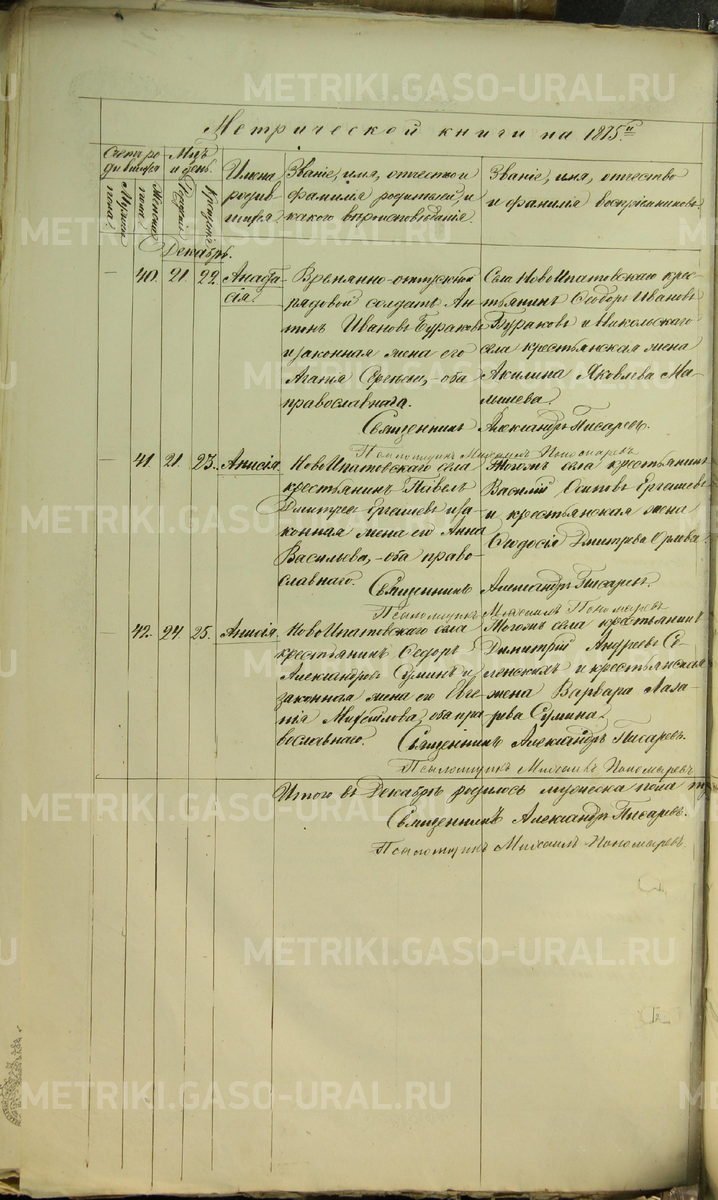 Метрической книги на 1875й
Счетъ ро-
дившихся
Мужеска
пола.
Женска
пола.
Мѣс.
и день.
Рожденiя
Крещенiя
Имена
родив-
шихся.
Званiе, имя, отчество и
фамилiя родителей, и
какого вѣроисповѣданiя.
Званiе, имя, отчество
и фамилiя воспрiемниковъ.
Декабрь.
40. 21. 22. Анаста-
сiя.
Временно-отпускной
рядовой солдатъ Ан-
тонъ Ивановъ Бураковъ
и законная жена его
Агатiя, оба
православнаго.
Села НовоИпатовскаго крес-
тьянинъ Ѳедоръ Ивановъ
Бураковъ и Никольскаго
села крестьянская жена
Акилина Яковлева Ма-
мишева.
Священникъ Александръ Писаревъ.
Псаломщикъ Михаилъ Пономаревъ
41. 21. 23. Анисiя.
НовоИпатовскаго села
крестьянинъ Павелъ
Дмитрiевъ Ергашевъ и за-
конная жена его Анна
Васильева, оба право-
славнаго.
Тогожъ села крестьянинъ
Василiй Осиповъ Ергашевъ
и крестьянская жена
Ѳеодосiя Дмитрiева Орлова.
Священникъ Александръ Писаревъ.
Псаломщикъ Михаилъ Пономаревъ
42. 24. 25. Анисiя.
НовоИпатовскаго села
крестьянинъ Ѳедоръ
Александровъ Суминъ и
законная жена его Евге-
нiя Михайлова, оба пра-
вославнаго.
Тогожъ села крестьянинъ
Димитрiй Андреевъ Се-
ленскихъ и крестьянская
жена Варвара Лаза-
рева Сумина.
Священникъ Александръ Писаревъ.
Псаломщикъ Михаилъ Пономаревъ
Итого въ Декабрѣ родилось мужеска пола
Священникъ Александръ Писаревъ.
Псаломщикъ Михаилъ Пономаревъ.
METRIKI.GASO-URAL.RU
METRIKI.GASO-URAL.RU
METRIKI.GASO-URAL.RU
METRIKI.GASO-URAL.RU
METRIKI.GASO-URAL.RU
METRIKI.GASO-URAL.RU
METRIKI.GASO-URAL.RU
METRIKI.GASO-URAL.RU